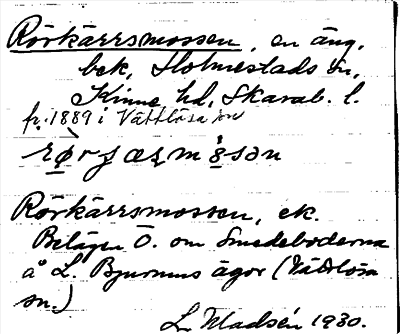 Rörkärrsmossen, en äng,
bek, Holmestads sn,
Kinne hd, Skarab. l.
fr. 1889 i Vättlösa sn
Rörkärrsmossen, ek.
Belägen Ö. om Smedeboderna
å L. Bjurums ägor (Vättlösa
sn.)
L. Madsén 1930.